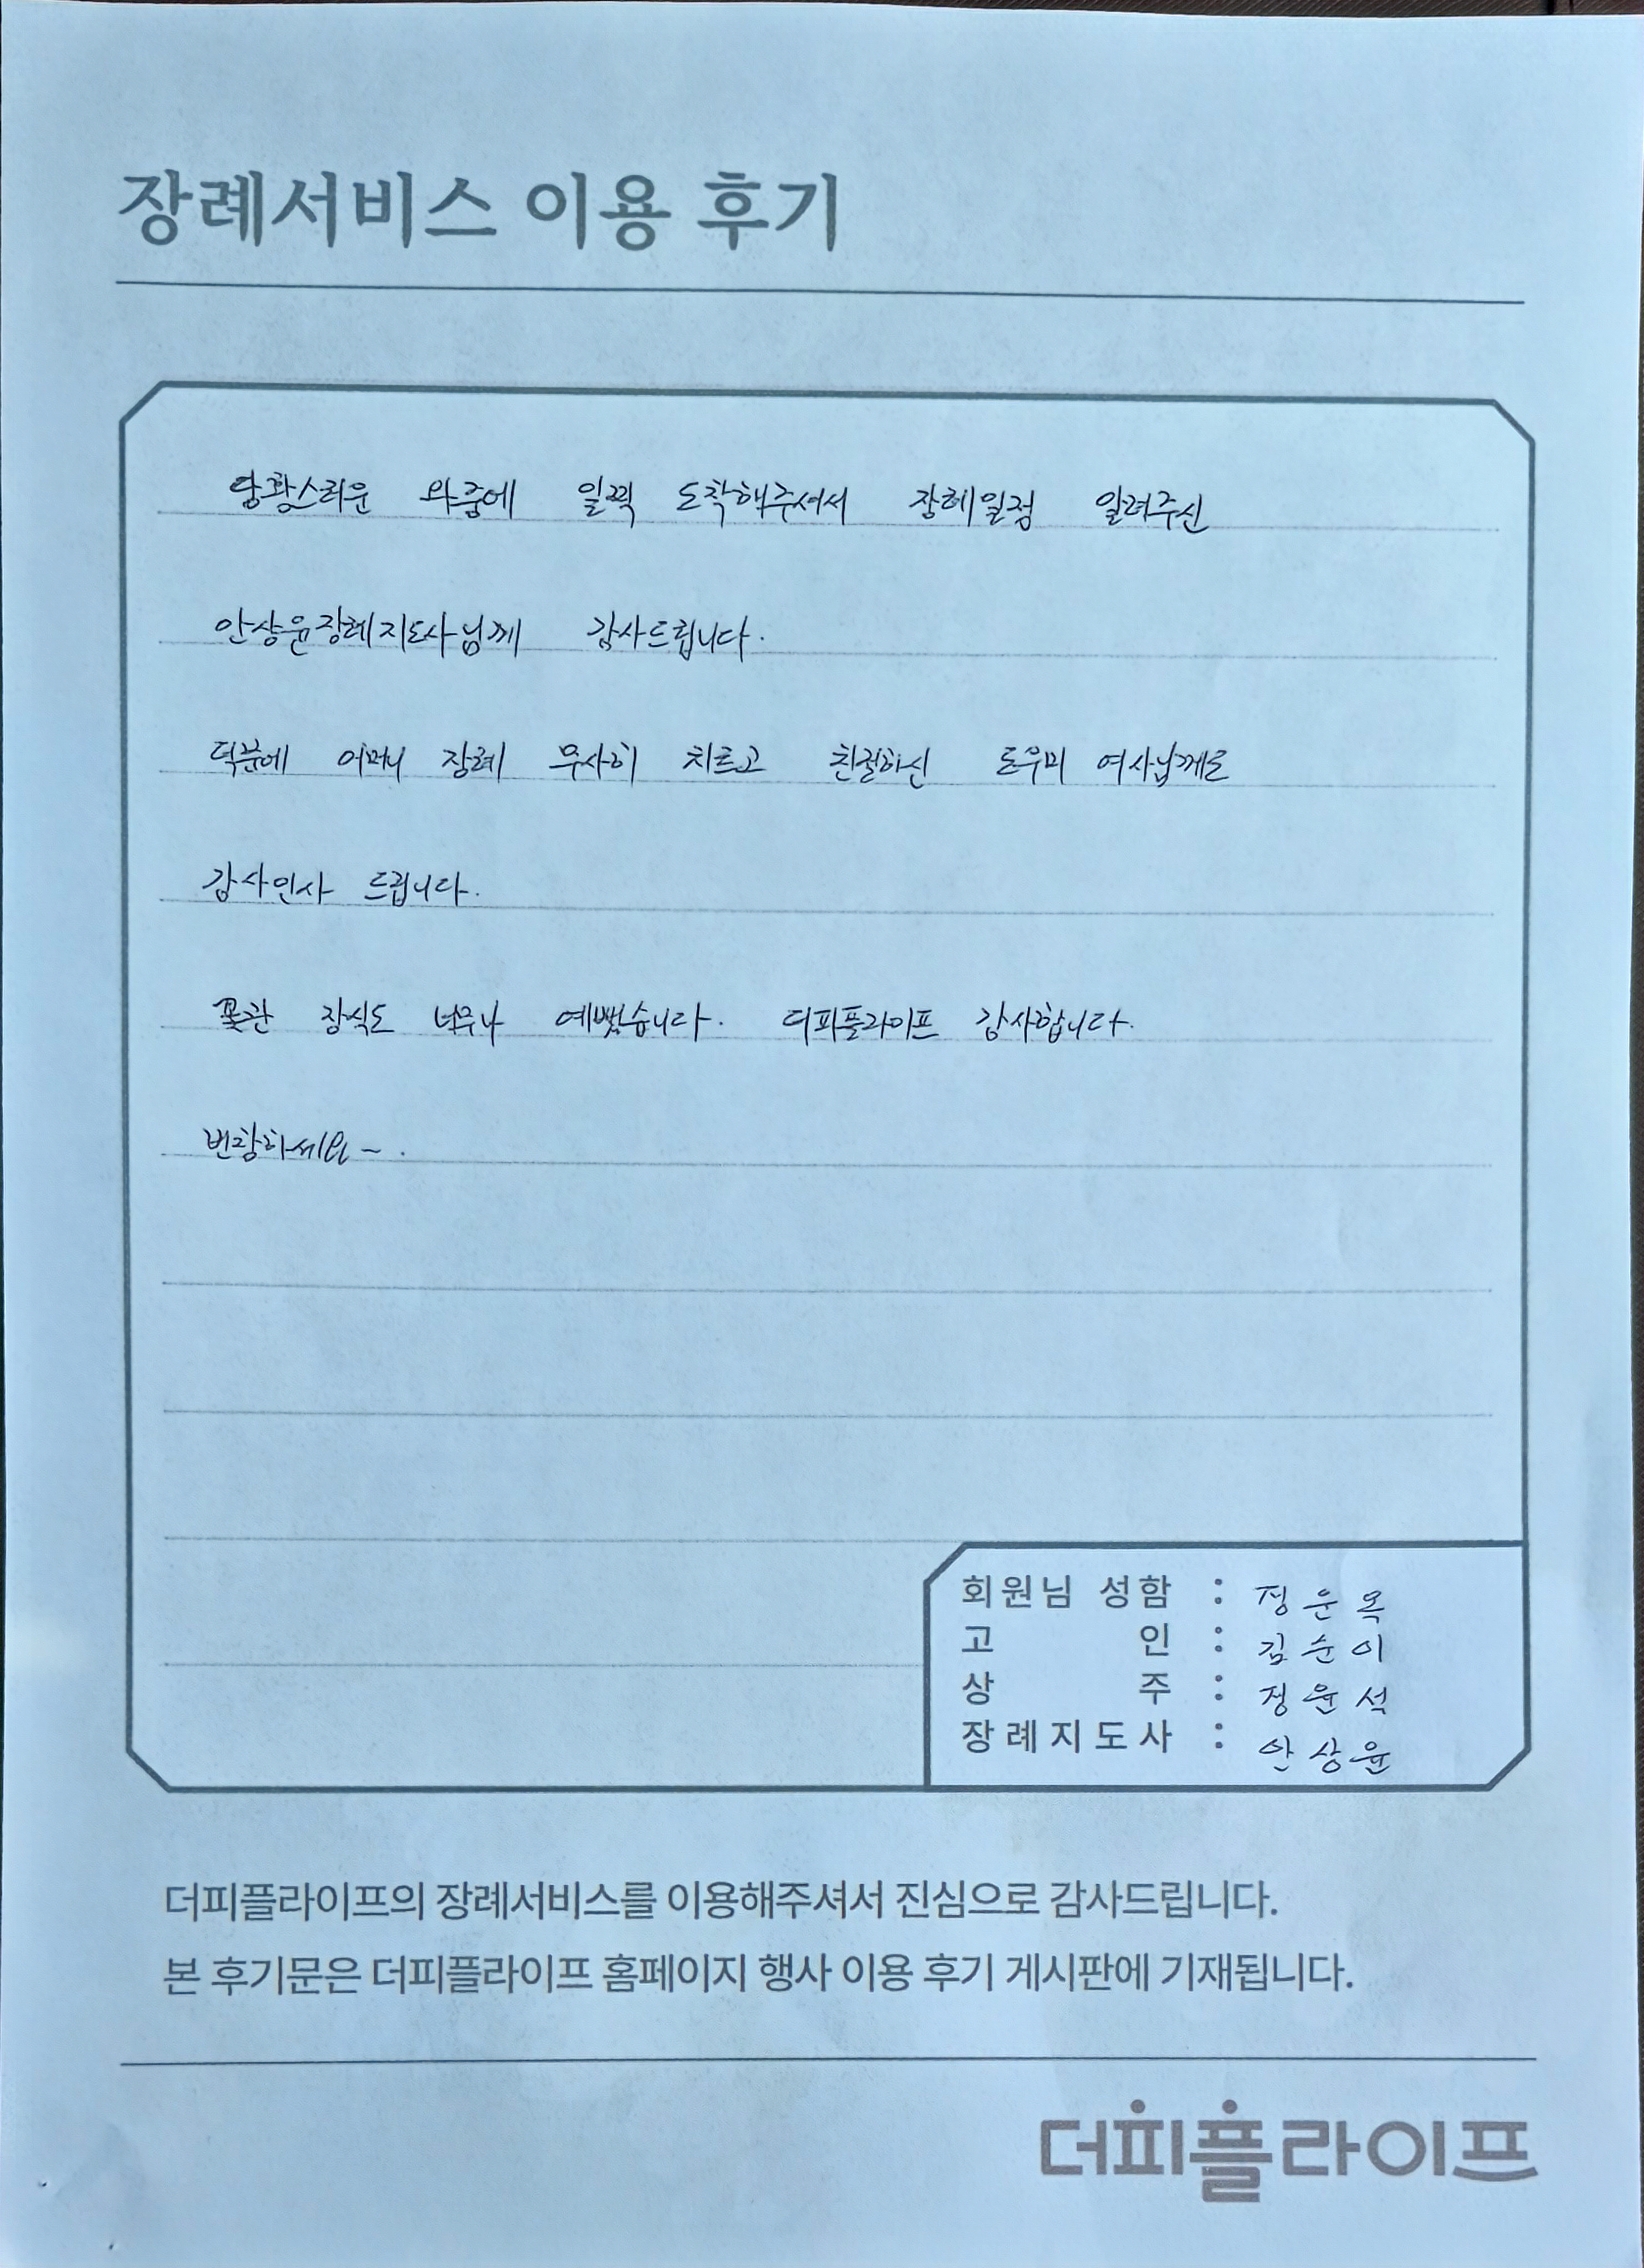 장례서비스 이용 후기
당황스러운 와중에 일찍 도착해주셔서 장례일정 알려주신
안상윤장례지도사님께 감사드립니다.
덕분에 어머니 장례 무사히 치르고 친절하신 도우미 여사님께도
감사인사 드립니다.
꽃관 장식도 너무나 예뻤습니다. 더피플라이프 감사합니다.
번창하세요~.
회원님 성함 : 정운옥
고 인 : 김순이
상 주 : 정윤석
장례지도사 : 안상윤
더피플라이프의 장례서비스를 이용해주셔서 진심으로 감사드립니다.
본 후기문은 더피플라이프 홈페이지 행사 이용 후기 게시판에 기재됩니다.
더피플라이프